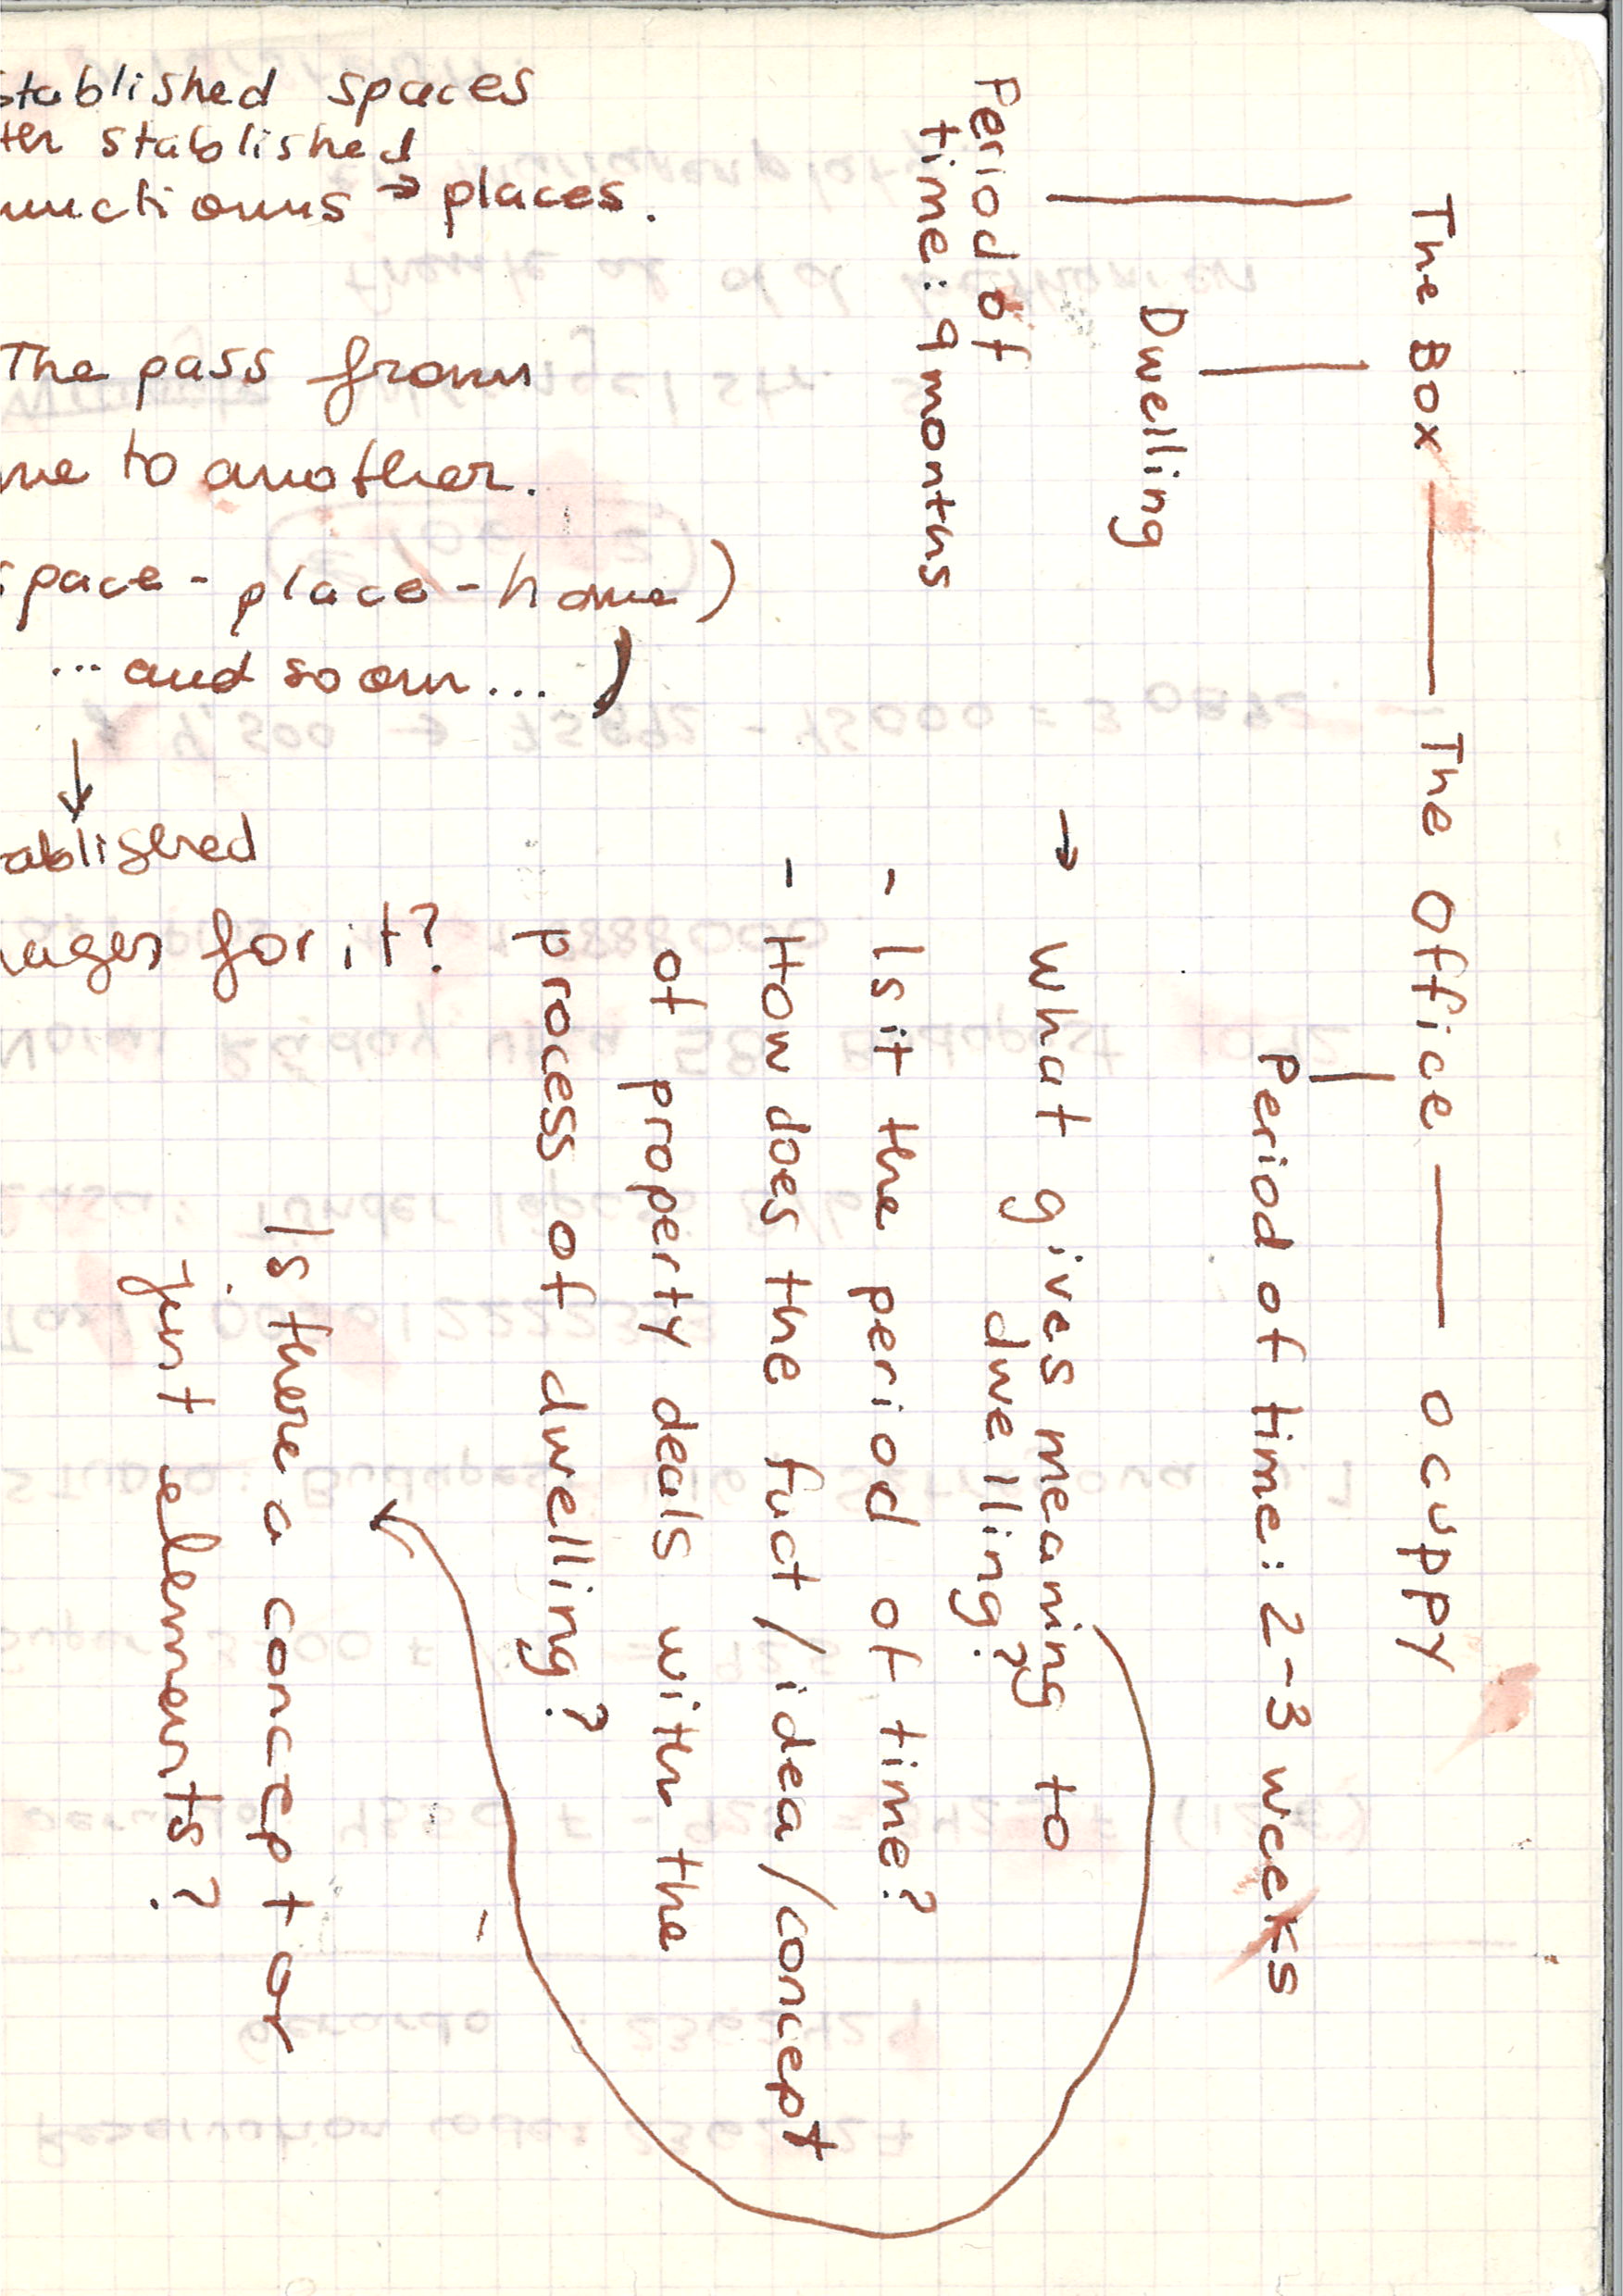 The Box — The Office — ocuppy
Dwelling
Period of
time: 9 months
Period of time: 2-3 weeks
→ What gives meaning to
dwelling?
- Is it the period of time?
- How does the fact / idea / concept
of property deals with the
process of dwelling?
Is there a concept or
just elements?
stablished spaces
stablished
→ places.
The pass from
to another.
- place - home)
... and so on... )
↓
ablished
for it?